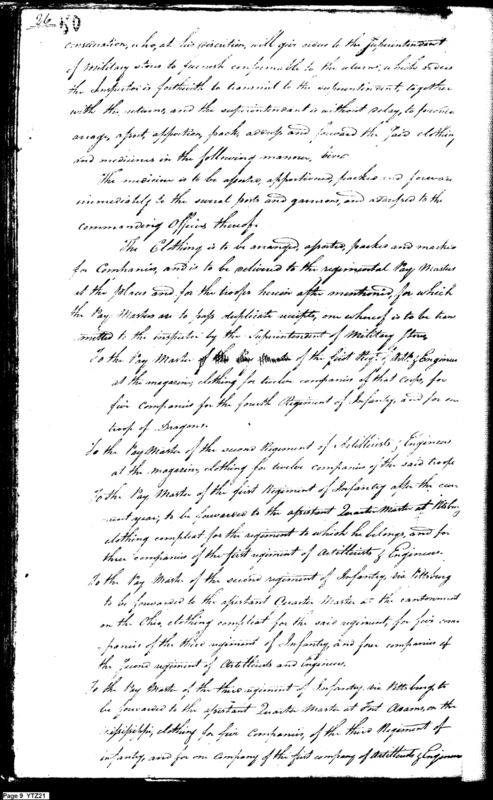 26 50
consideration, who, at his discretion, will give orders to the Superintendent
of Military stores to furnish conformable to the returns, which orders
the Inspector is forthwith to transmit to the superintendent, together
with the returns, and the superintendent is without delay, to
arrange, assort, apportion, pack, address and forward the said clothing
and medicines in the following manner,
The medicine is to be assorted, apportioned, packed and forwarded
immediately to the several posts and garrisons, and addressed to the
commanding Officer thereof.
The Clothing is to be arranged, assorted, packed and marked
for Companies, and is to be delivered to the regimental Pay Masters
at the places and for the troops herein after mentioned, for which
the Pay Masters are to pass duplicate receipts, one whereof is to be trans
mitted to the inspector by the Superintendent of Military Stores.
To the Pay Master of the first Regt. of Artil. & Engineers
at the magazine, clothing for twelve companies of that corps, for
five Companies for the fourth Regiment of Infantry, and for one
troop of Dragoons.
To the Pay Master of the second Regiment of Artillerists & Engineers
at the magazine, clothing for twelve companies of the said troops
To the Pay Master of the first Regiment of Infantry after the cur-
rent year, to be forwarded to the assistant Quarter Master at Pittsburg
clothing compleat for the regiment to which he belongs, and for
three companies of the first regiment of Artillerists & Engineers.
To the Pay Master of the second regiment of Infantry, via Pittsburg
to be forwarded to the assistant Quarter Master at the cantonment
on the Ohio, clothing compleat for the said regiment, for five com-
panies of the third regiment of Infantry, and four companies of
the second regiment of Artillerists and Engineers.
To the Pay Master of the third regiment of Infantry, via Pittsburg, to
be forwarded to the assistant Quarter Master at Fort Adams, on the
Mississippi, clothing for five Companies, of the third Regiment of
infantry, and for one Company of the first company of Artillerists & Engineers
Page 9 YTZ21